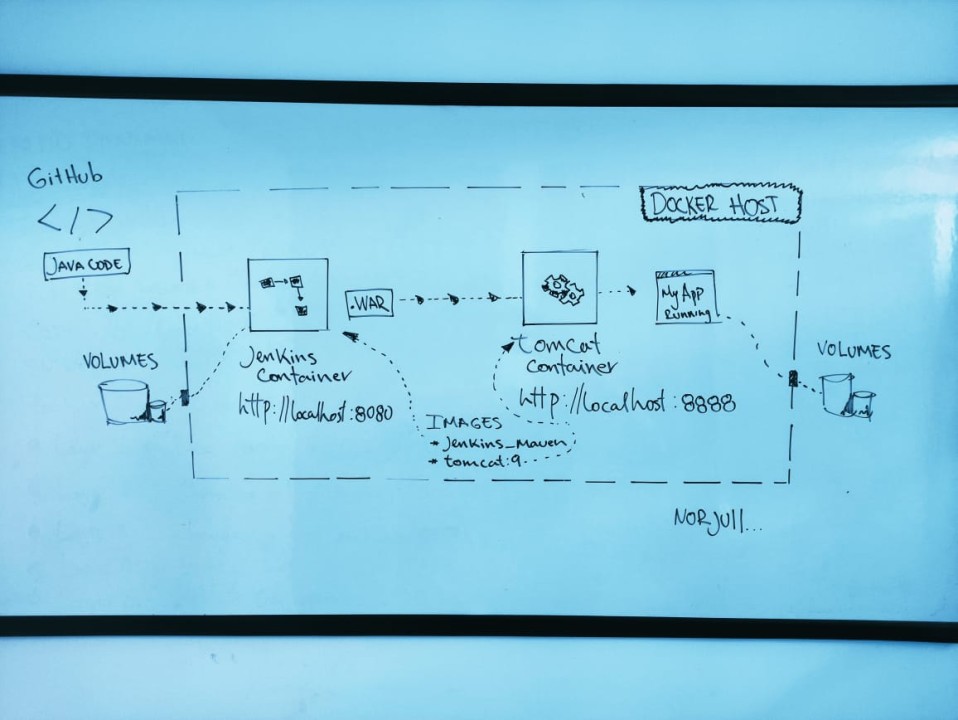 GitHub
</>
JAVA CODE
DOCKER HOST
.WAR
My App
Running
Jenkins
Container
http://localhost:8080
tomcat
container
http://localhost:8888
VOLUMES
VOLUMES
IMAGES
* Jenkins_Maven
* tomcat:9
NORJull...